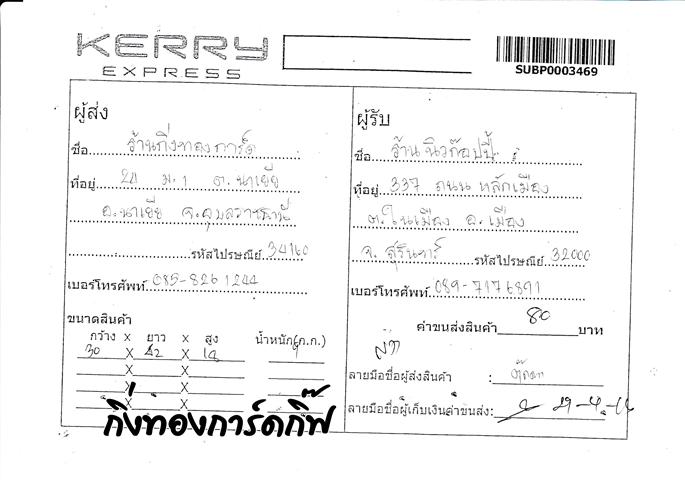 KERRY
EXPRESS
SUBP0003469
ผู้ส่ง
ชื่อ ร้านกิ่งทองการ์ด
ที่อยู่ 24 ม.1 ต.นาเยีย
อ.นาเยีย จ.อุบลราชธานี
รหัสไปรษณีย์ 34160
เบอร์โทรศัพท์ 085-8261244
ขนาดสินค้า
กว้าง X ยาว X สูง น้ำหนัก(ก.ก.)
30 X 42 X 18
X X
X X
X X
กิ่งทองการ์ดกิ๊ฟ
ผู้รับ
ชื่อ ร้าน นิวก๊อปปี้
ที่อยู่ 337 ถนน หลักเมือง
ต.ในเมือง อ.เมือง
จ.สุรินทร์ รหัสไปรษณีย์ 32000
เบอร์โทรศัพท์ 089-7176891
ค่าขนส่งสินค้า 80 บาท
ลายมือชื่อผู้ส่งสินค้า :
ลายมือชื่อผู้เก็บเงินค่าขนส่ง: